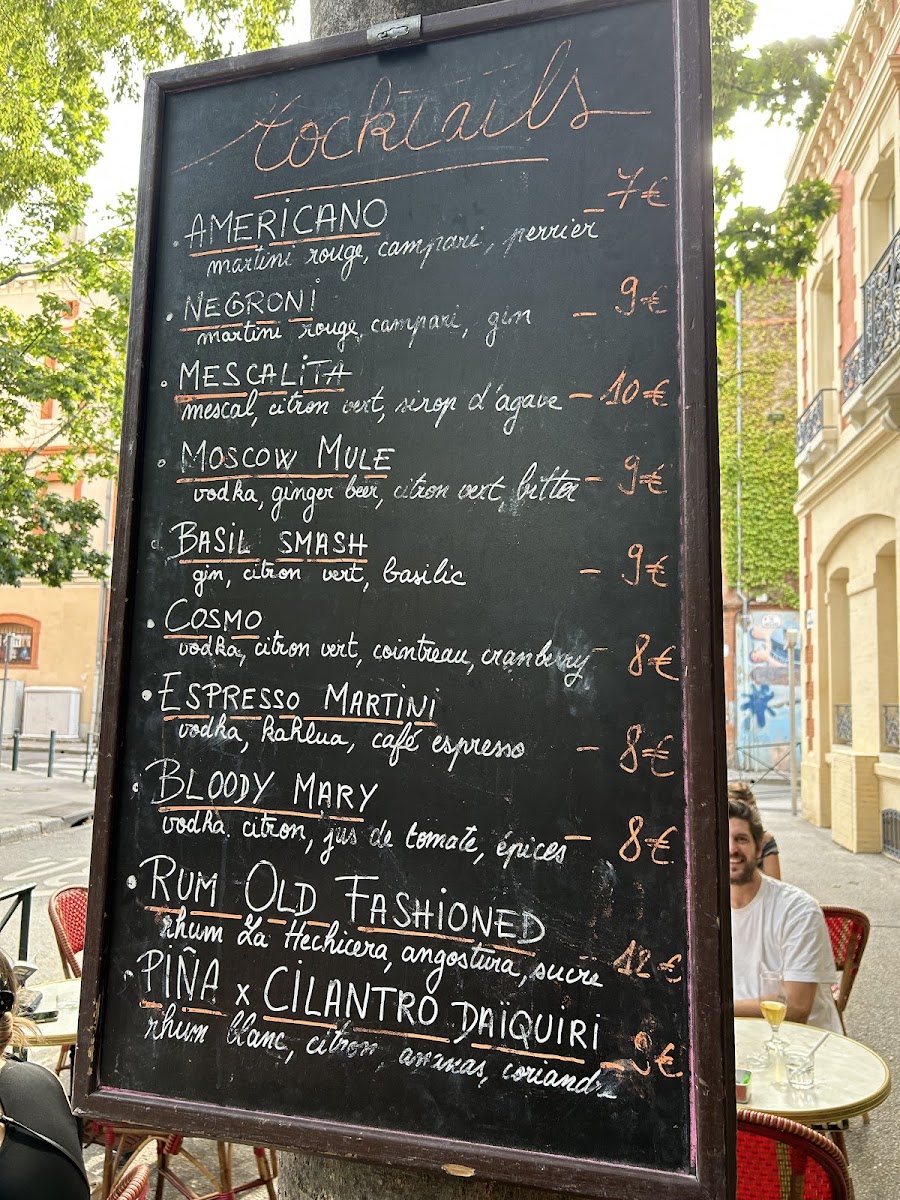 Cocktails
AMERICANO - 7€
martini rouge, campari, perrier
NEGRONI - 9€
martini rouge, campari, gin
MESCALITA
mescal, citron vert, sirop d'agave - 10€
MOSCOW MULE - 9€
vodka, ginger beer, citron vert, bitter
BASIL SMASH - 9€
gin, citron vert, basilic
COSMO
vodka, citron vert, cointreau, cranberry - 8€
ESPRESSO MARTINI
vodka, kahlua, café espresso - 8€
BLOODY MARY
vodka, citron, jus de tomate, épices - 8€
RUM OLD FASHIONED
rhum La Hechicera, angostura, sucre 12€
PIÑA x CILANTRO DAÏQUIRI
rhum blanc, citron, ananas, coriandre - 9€